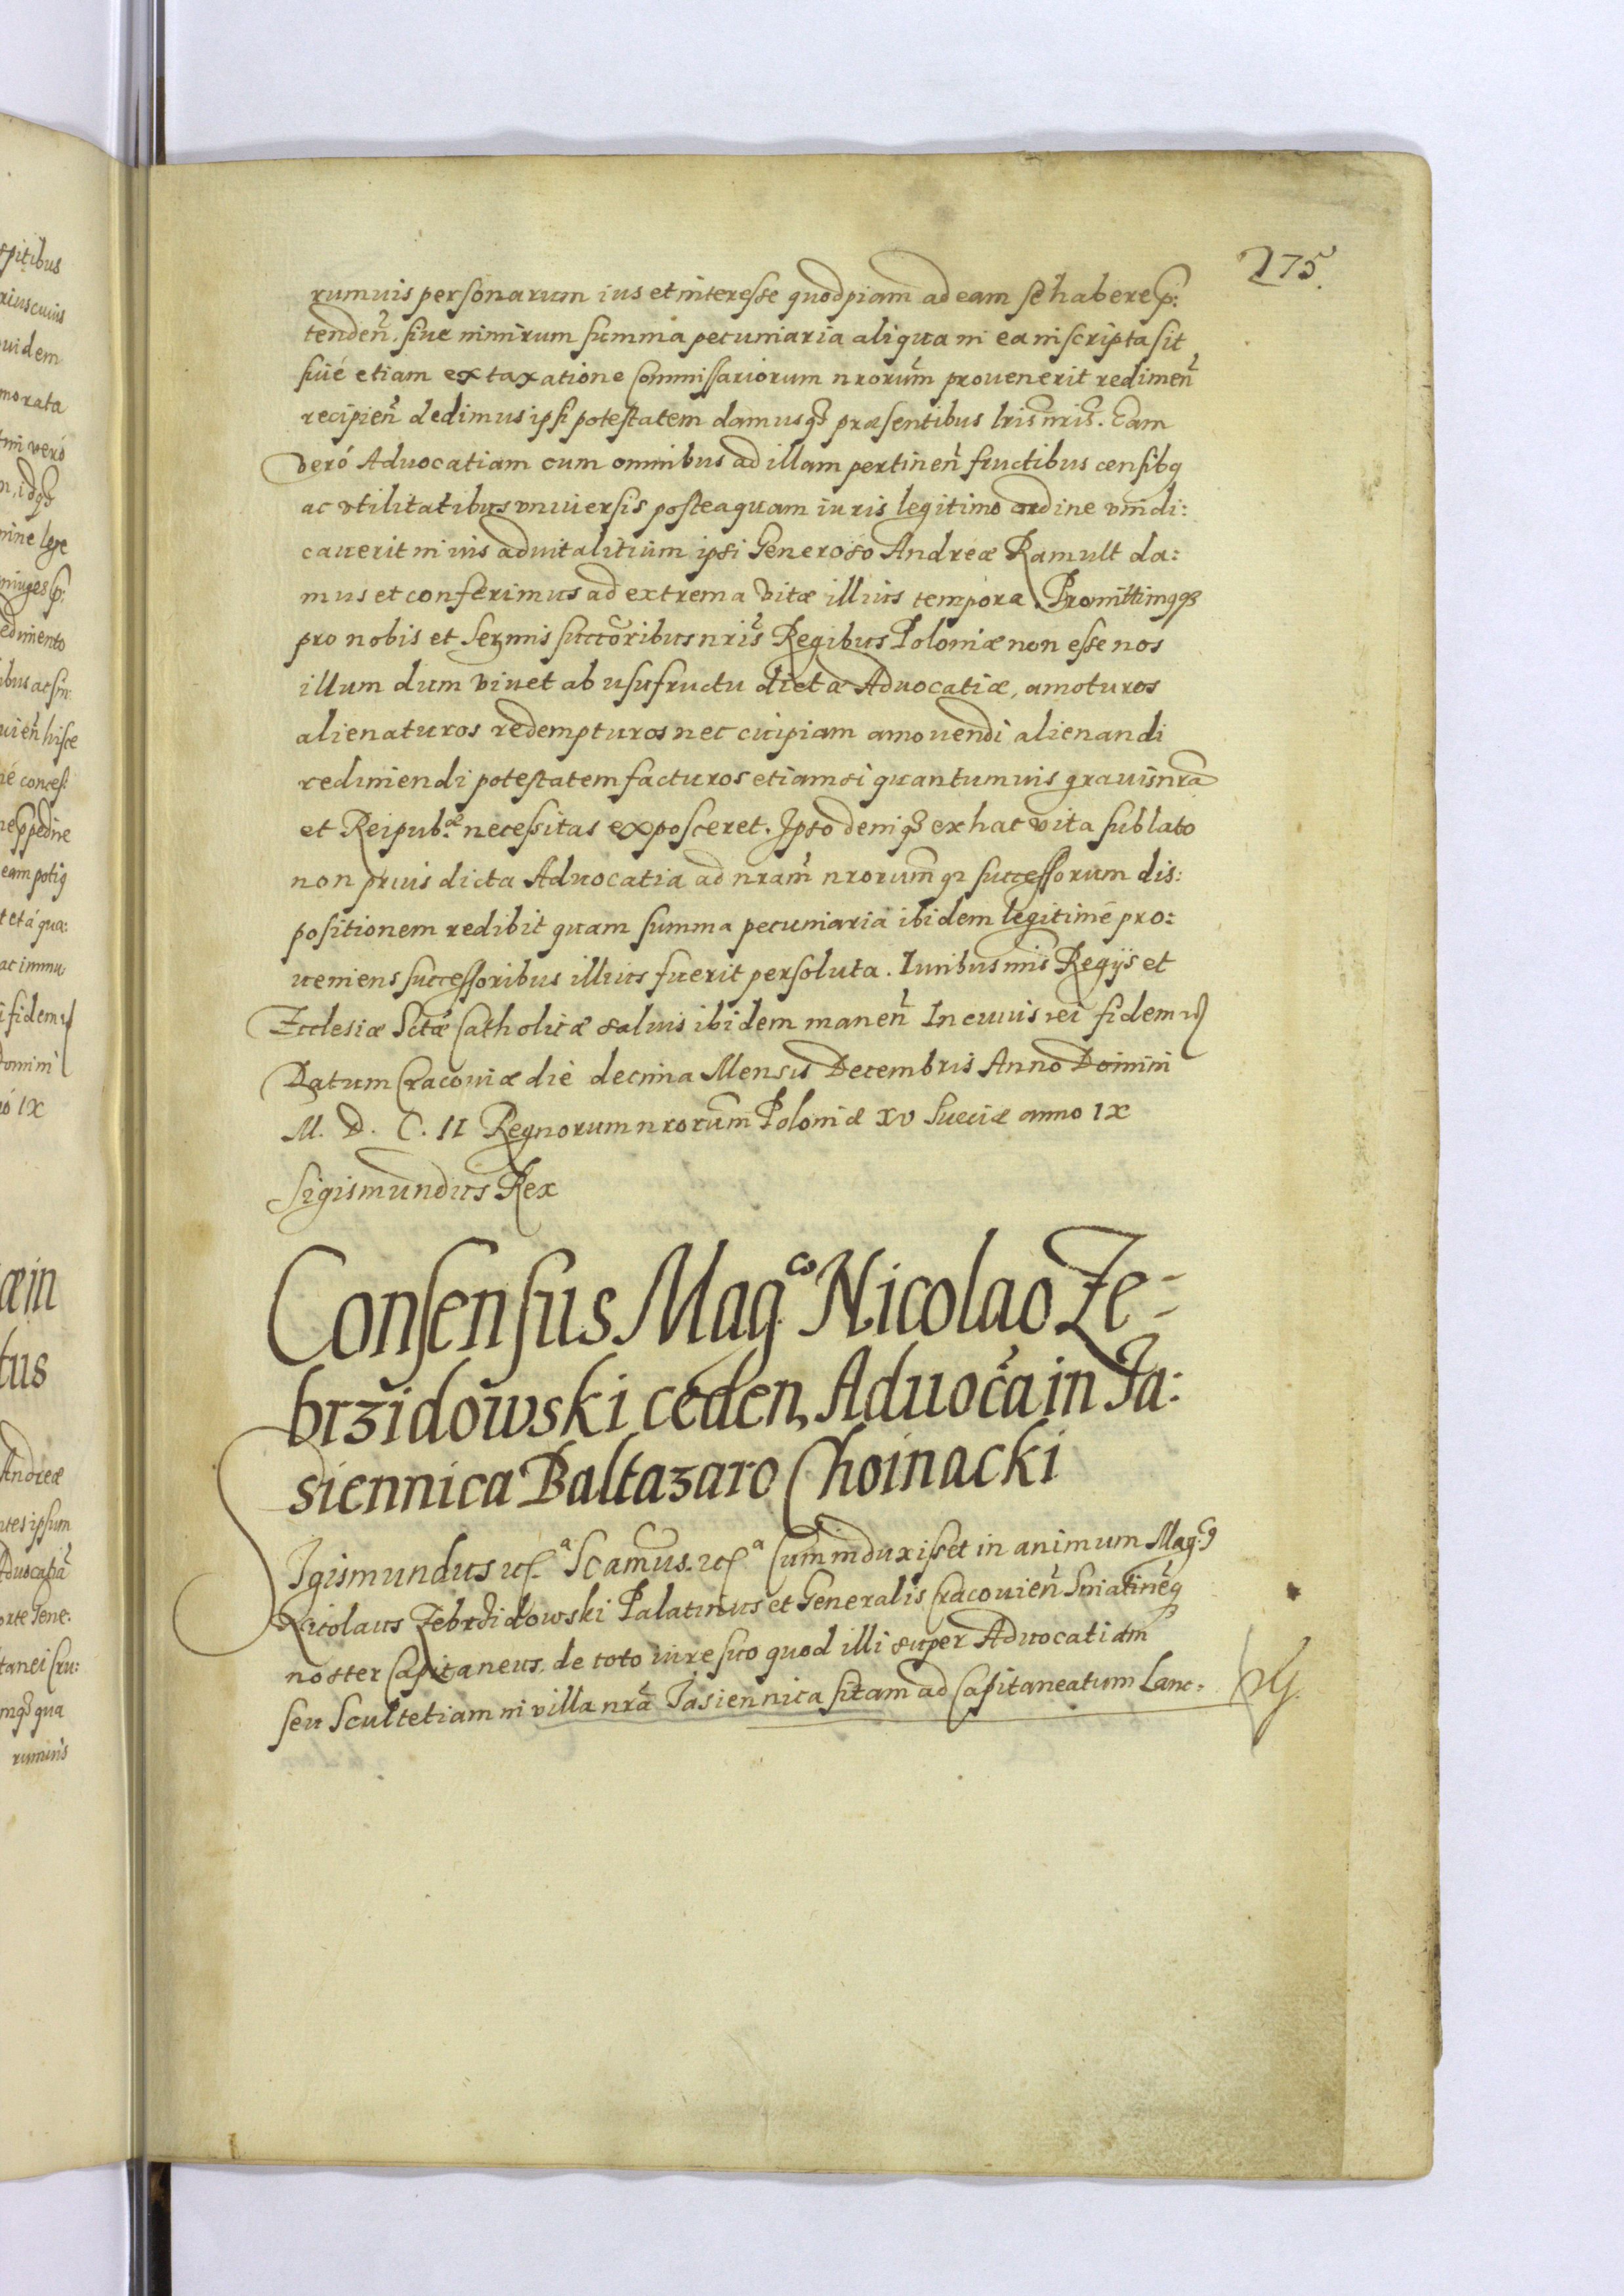 275.
rumuis personarum ius et interesse quodpiam ad eam se habere p:
tendeñ. siue nimirum summa pecuniaria aliqua in ea inscripta sit
siué etiam ex taxatione Commissariorum nrorum̃ prouenerit redimeñ
recipieñ dedimus ipsi potestatem damusq3 præsentibus lris nris. Eam
veró Aduocatiam cum omnibus ad illam pertineñ fructibus censibq
ac vtilitatibus vniuersis posteaquam iuris legitimo ordine vindi:
cauerit in ius aduitalitium ipsi Generoso Andreæ Ramult da:
mus et conferimus ad extrema vitæ illius tempora. Promittimqq3
pro nobis et Sermis succoribus nris Regibus Poloniæ non esse nos
illum dum viuet ab usufructu dictæ Aduocatiæ, amoturos
alienaturos redempturos nec cuipiam amouendi alienandi
redimendi potestatem facturos etiamsi quantumuis grauis nrã
et Reipub.æ necessitas exposceret. Ipso deniq3 ex hac vita sublato
non prius dicta Aduocatia ad nram̃ nrorum̃q3 successorum dis:
positionem redibit quam summa pecuniaria ibidem legitime pro:
ueniens successoribus illius fuerit persoluta. Iuribus nris Regijs et
Ecclesiæ Sctæ Catholicæ saluis ibidem maneñ In cuius rei fidem
Datum Cracouiæ die decima Mensis Decembris Anno Domini
M. D. C. II Regnorum nrorum̃ Poloniæ XV Sueciæ anno IX
Sigismundus Rex
Consensus Mag.co Nicolao Ze-
brzidowski ceden, Aduocã in Ja:
siennica Baltazaro Choinacki
Sigismundus etc.a Scamus. etc.a Cum induxisset in animum Mag.cq
Nicolaus Zebrzidowski Palatinus et Generalis Cracouieñ Sniatineñq
noster Capitaneus. de toto iure suo quod illi super Aduocatiam
seu Scultetiam in villa nrã Jasiennica sitam ad Capitaneatum Lanc: